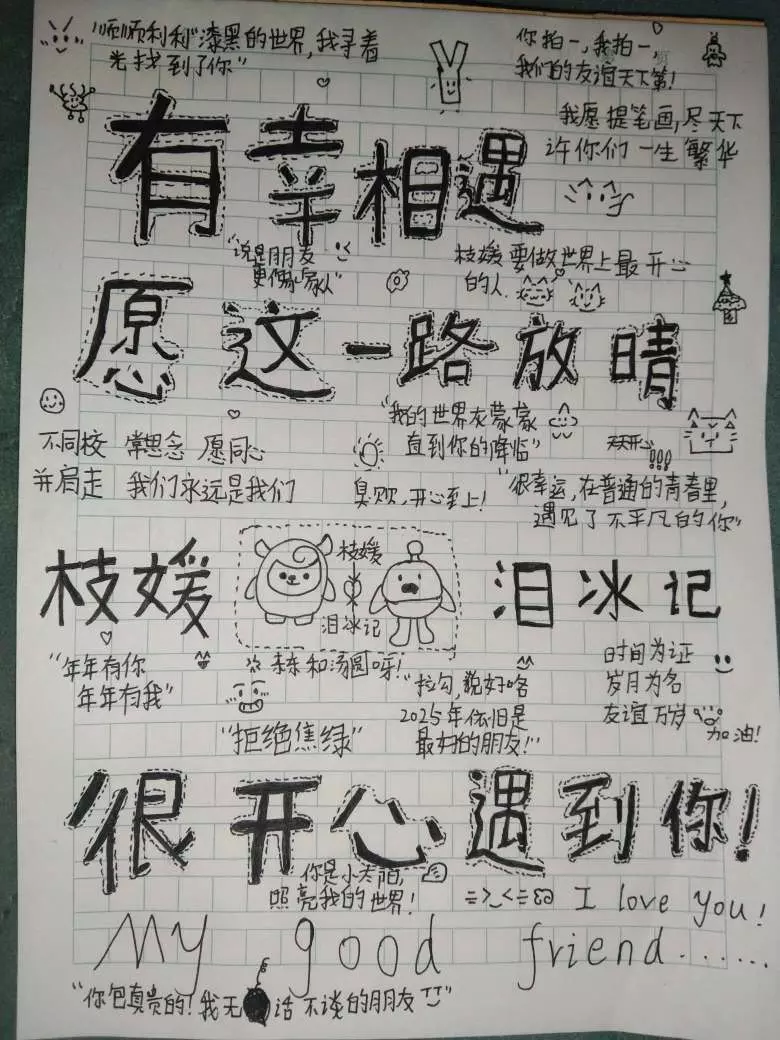 "顺顺利利"漆黑的世界,我寻着
光找到了你"
你拍一,我拍一,
我们的友谊天下第!
我愿提笔画,尽天下
许你们一生繁华
有幸相遇
"说是朋友
更像家人"
枝媛要做世界上最开心
的人
愿这一路放晴
"我的世界灰蒙蒙
直到你的降临"
天天开心
!!!
不同校 常思念 愿同心
并肩走 我们永远是我们
臭贝贝,开心至上!
"很幸运,在普通的青春里,
遇见了不平凡的你"
枝媛
枝媛
泪冰记
泪冰记
"年年有你
年年有我"
东东和汤圆呀!
"拒绝焦绿"
"拉勾,说好咯
2025年依旧是
最好的朋友!"
时间为证
岁月为名
友谊万岁
加油!
很开心遇到你!
你是小太阳,
照亮我的世界!
I love you!
My good friend......
"你包真贵的!我无话不谈的朋友